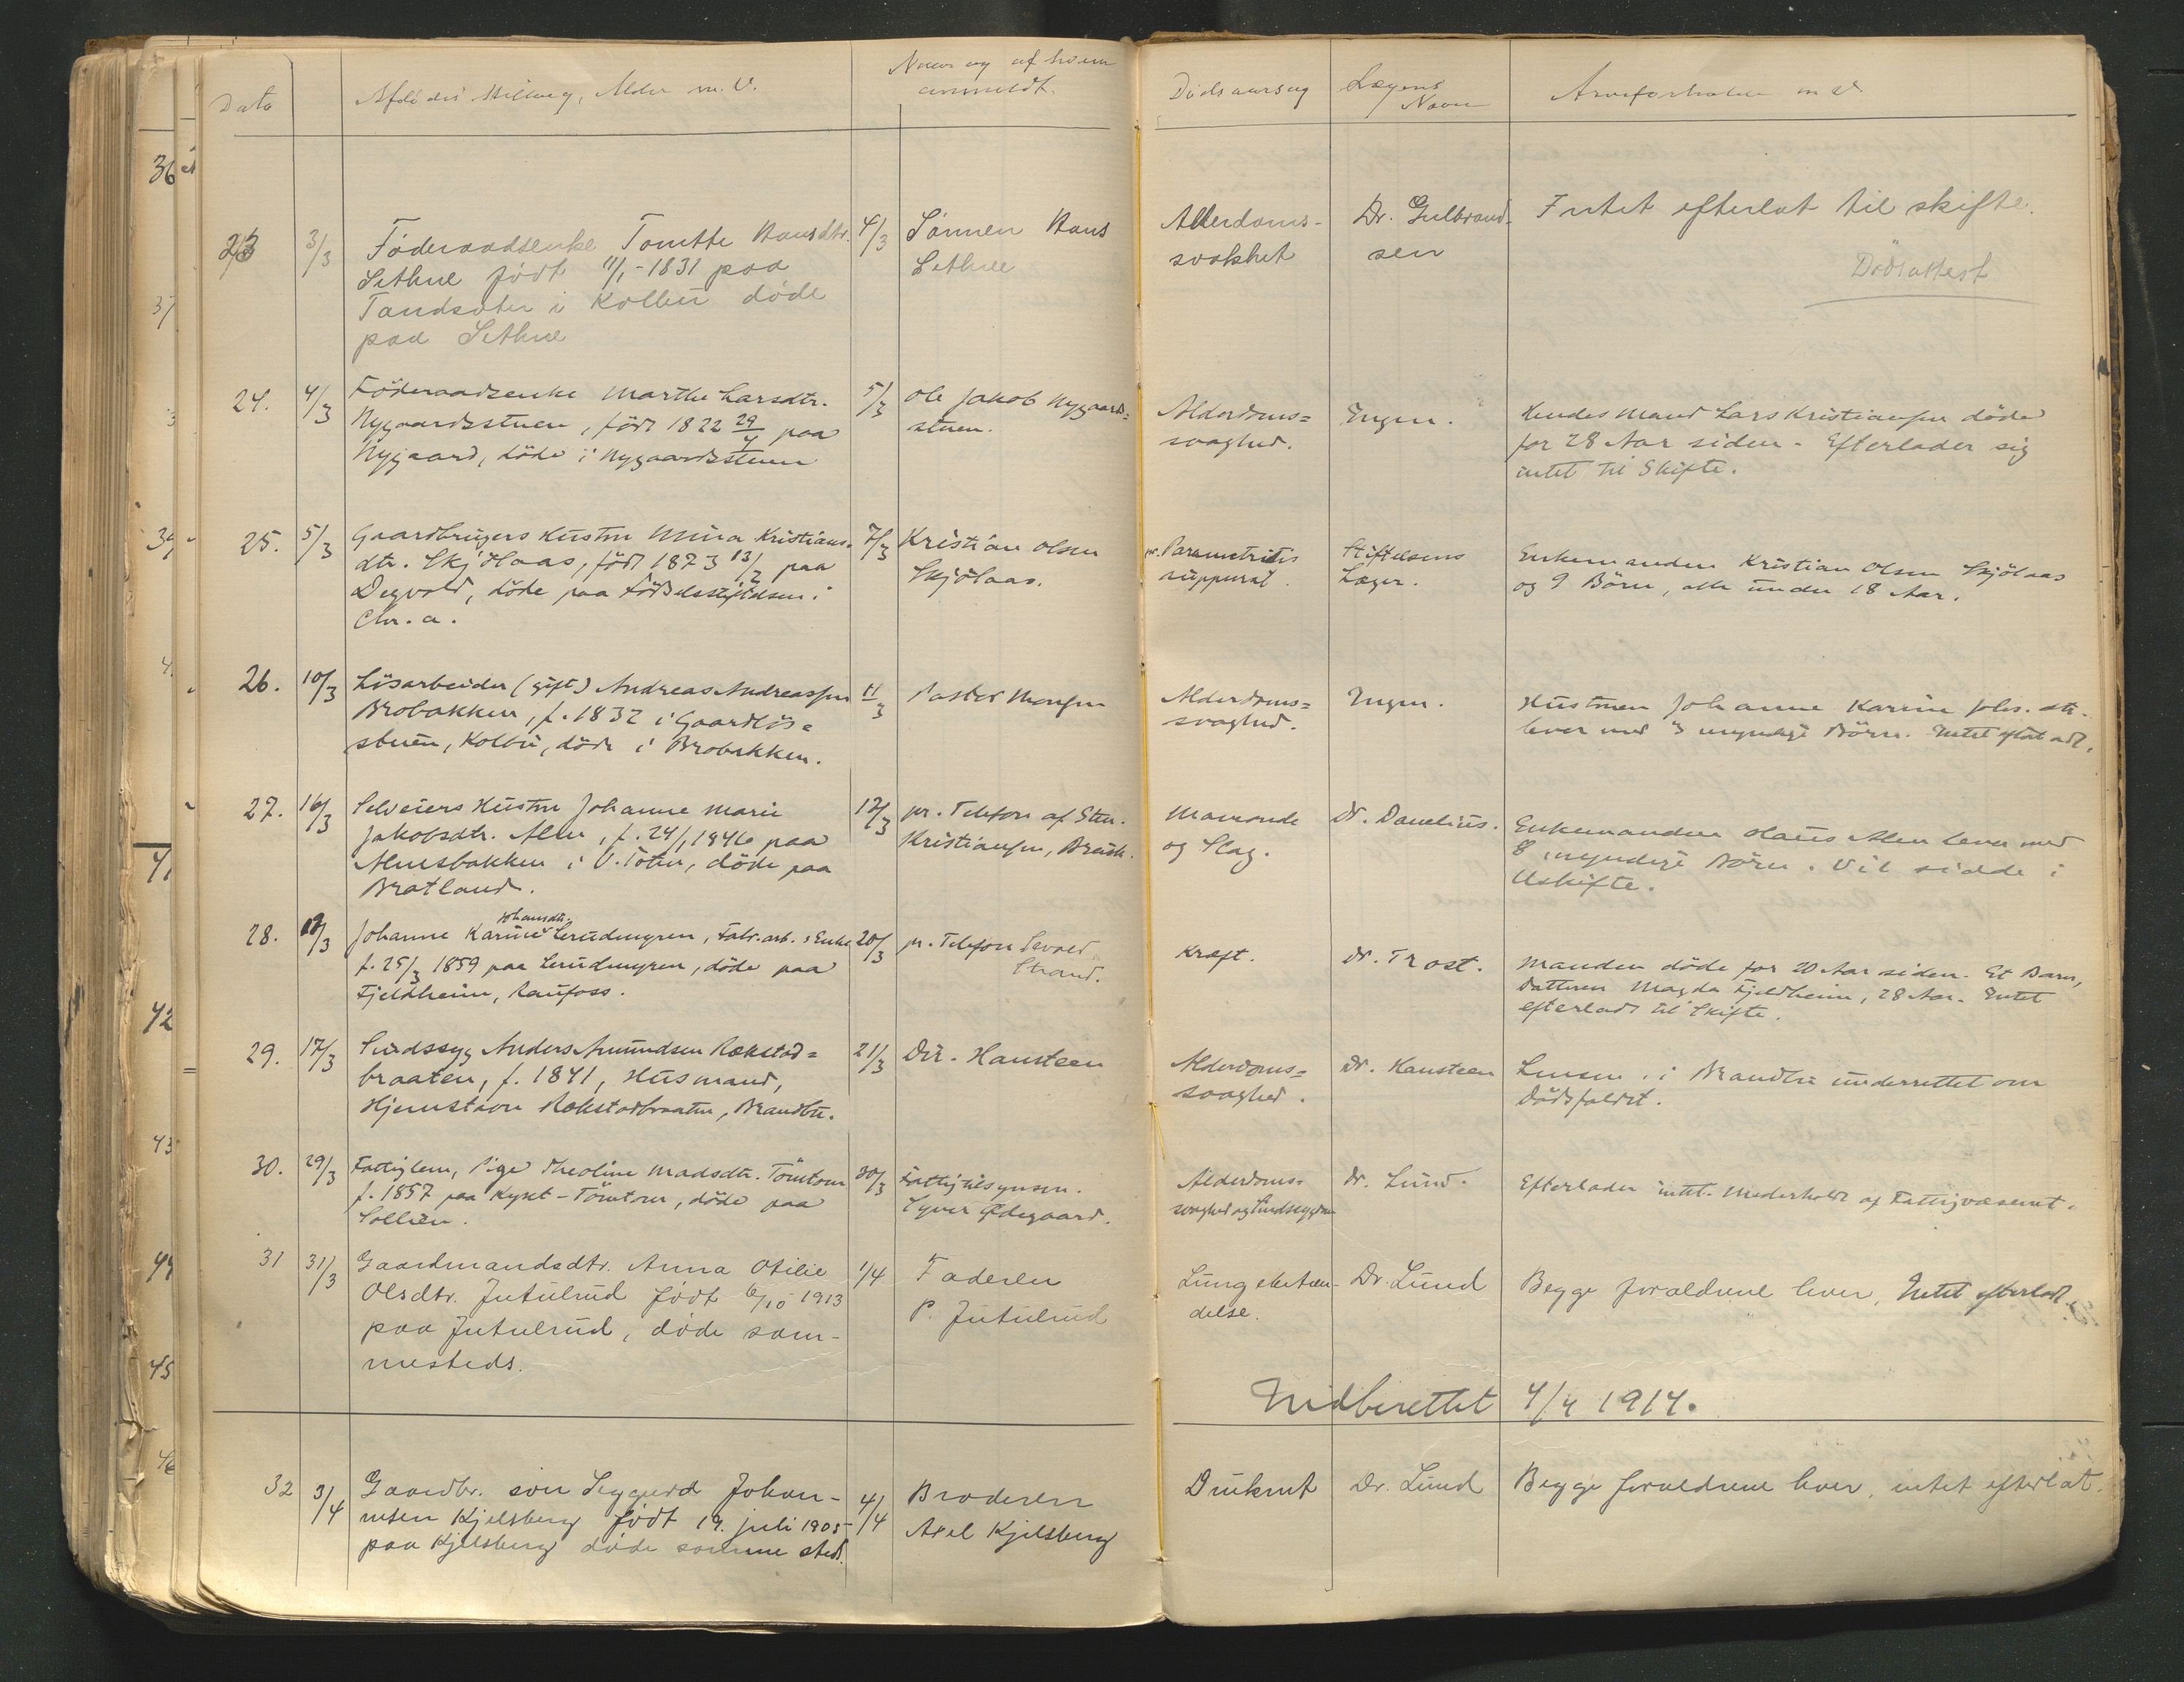 Dato
Afdødes Stilling, Alder m. V.
Naar og af hvem
anmeldt.
Dødsaarsag
Lægens
Navn
Arveforholde m. V.
23
3/3
Föderaadsenke Tomtte Hansdtr.
Sethne født 11/1-1831 paa
Tandsæter i Kolbu døde
paa Sethne
4/3
Sønnen Hans
Sethne
Alderdoms-
svakhet
Dr. Gulbrand-
sen
Intet efterlat til skifte.
Dødsattest
24.
4/3
Föderaadsenke Marthe Larsdtr.
Nygaardsstuen, född 1822 29/4 paa
Nygaard, döde i Nygaardsstuen
5/3
Ole Jakob Nygaards=
stuen.
Alderdoms=
svaghed.
Ingen.
Hendes Mand Lars Kristiansen döde
for 28 Aar siden - Efterlader sig
intet til Skifte.
25.
5/3
Gaardbrugers Hustru Mina Kristians=
dtr. Skjölaas, född 1873 13/2 paa
Degvold, döde paa Födselsstiftelsen i
Chr.a.
7/3
Kristian Olsen
Skjölaas.
Parametritis
suppurat.
Stiftelsens
Læger.
Enkemanden Kristian Olsen Skjölaas
og 9 Börn, alle under 18 Aar.
26.
10/3
Lösarbeider (gift) Andreas Andreassen
Brobakken, f. 1832 i Gaardlös=
stuen, Kolbu, döde i Brobakken.
11/3
Pastor Monsen
Alderdoms=
svaghed.
Ingen.
Hustruen Johanne Karine Johs. dtr.
lever med 3 myndige Börn. Intet efterladt.
27.
16/3
Selveiers Hustru Johanne Marie
Jakobsdtr. Alm, f. 24/1 1846 paa
Almsbakken i V. Toten, döde paa
Bratland.
17/3
pr. Telefon af Sten.
Kristiansen, Breisk.
Mavonde
og Slag.
Dr. Danelius.
Enkemanden Hans Alm lever med
8 myndige Börn. Vil sidde i
Uskifte.
28.
18/3
Johansdtr.
Johanne Karine Lerudmyren, Fabr.arb.s Enke
f. 25/3 1859 paa Lerudmyren, döde paa
Fjeldheim, Raufoss.
20/3
pr. Telefon Sevald
Strand.
Kræft.
Dr. Trost.
Manden döde for 20 Aar siden. Et Barn,
Datteren Magda Fjeldheim, 28 Aar. Intet
efterladt til Skifte.
29.
17/3
Sindssyg Anders Amundsen Rokstad=
braaten, f. 1841, Husmand,
Hjemstavn Rokstadbraaten, Brandbu.
21/3
Dir. Hansteen
Alderdoms=
svaghed.
Dr. Hansteen
Lensm. i Brandbu underrettet om
Dödsfaldet.
30.
29/3
Fattiglem, Pige Theoline Madsdtr. Tömtom
f. 1857 paa Kyset-Tömtom, döde paa
Sollien.
30/3
Fattigtilsynsm.
Syver Ødegaard.
Alderdoms=
svaghed og Sindssygdom
Dr. Lund.
Efterlader intet. Underholdt af Fattigvæsenet.
31
31/3
Gaardmandsdtr. Anna Otilie
Olsdtr. Jutulrud født 6/10 1913
paa Jutulrud, døde sam-
mesteds.
1/4
Faderen
P. Jutulrud
Lungebetæn-
delse.
Dr. Lund
Begge forældrene lever. Intet efterladt.
Indberettet 4/4 1914.
32
3/4
Gaardbr. søn Sigurd Johan-
nesen Kjelsberg født 19. juli 1905
paa Kjelsberg døde samme sted.
4/4
Broderen
Axel Kjelsberg
Druknet
Dr. Lund
Begge forældrene lever, intet efterlat.
36
37
39
41
42
43
44
45
46